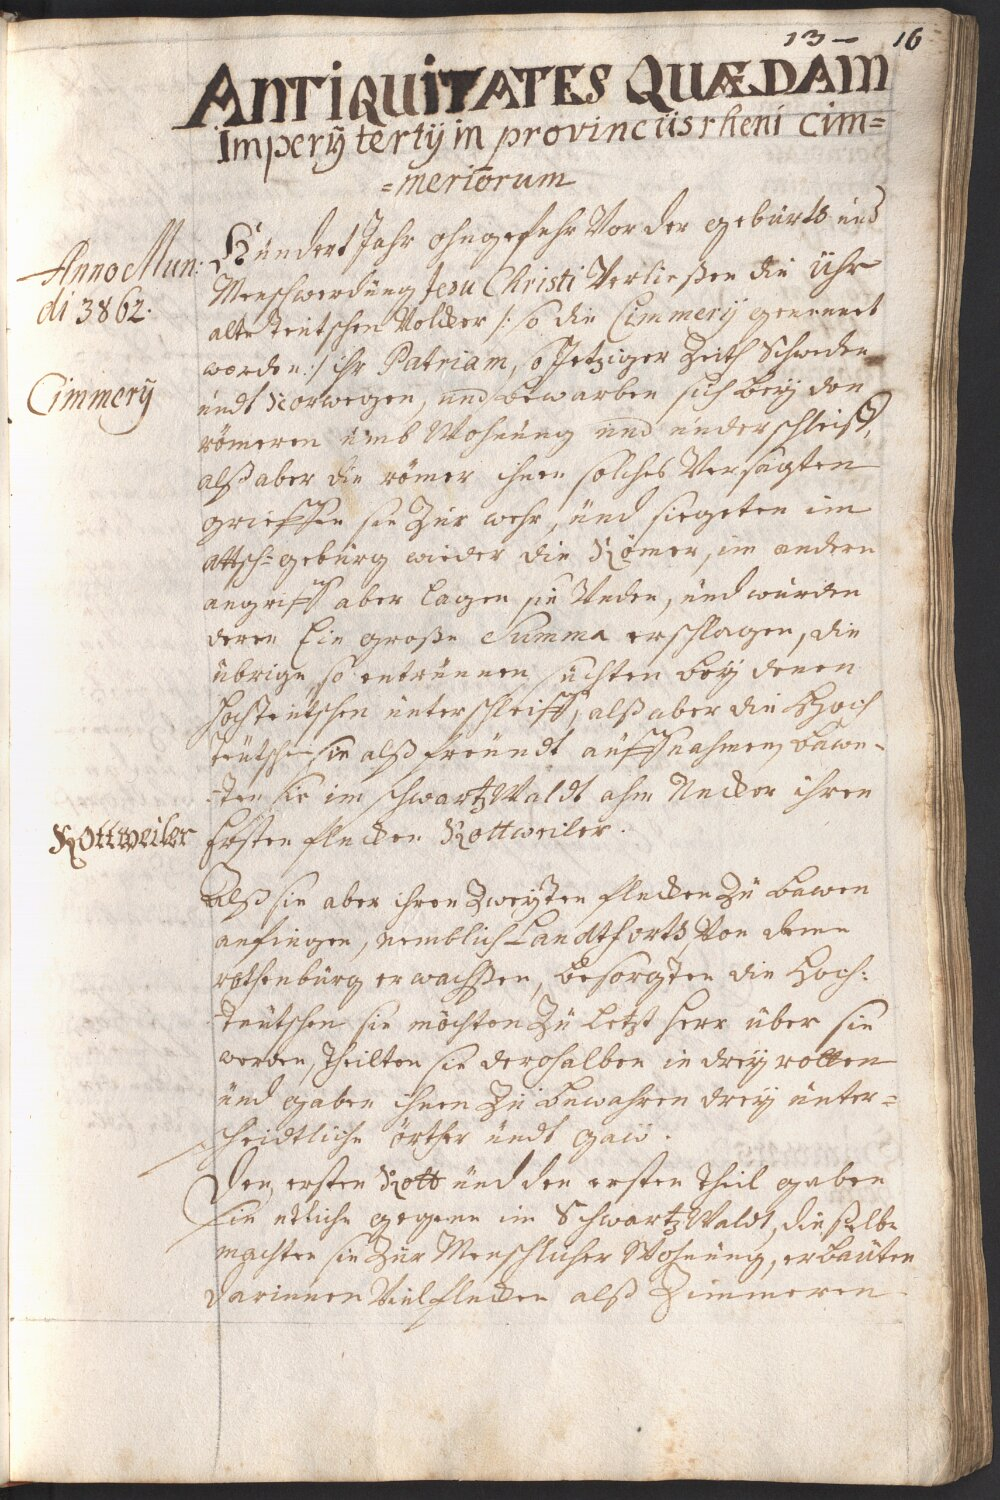 13 — 16
ANTIQUITATES QUÆDAM
Imperÿ tertÿ in provinciis rheni cim=
=meriorum
Anno Mun:
di 3862.
Hundert Jahr ohngefehr Vor der geburts und
Menschwerdung Jesu Christi Verließen die Uhr
alte Teutschen Volcker /: so die Cimmerÿ genennet
Cimmerÿ
worden :/ ihr Patriam, o Jetziger Zeith Schweden
undt Norwegen, und bewarben sich beÿ den
römeren umb Wohnung und underschleiff,
alß aber die römer ihnen solches Versagten
grieffen sie Zur wehr, und siegeten im
gebürg wieder die Römer, im andern
angriff aber lagen sie Unden, und wurden
deren Ein große Summa erschlagen, die
übrige so entrunnen suchten beÿ denen
Hochteutschen unterschleiff, alß aber die Hoch
teutsche sie alß freündt auffnahmen, bawe-
-ten sie im schwartzWaldt ahm Necker ihren
Rottweiler
Ersten flecken Rottweiler.
Alß sie aber ihren Zweÿten flecken Zu bawen
anfingen, nemblich Landtforts Von deme
rothenburg erwachßen, besorgten die Hoch:
teutschen sie möchten Zu letzt Herr über sie
werden, theilten sie derohalben in dreÿ rotten
und gaben ihnen Zu bewahren dreÿ unter=
scheidtliche örther undt gaw.
Den ersten Rott und den ersten theil gaben
Sie etliche gegene im SchwartzWaldt, dieselbe
machten sie Zur Menschlicher Wohnung, erbauten
darinnen Viel flecken alß Zimmeren